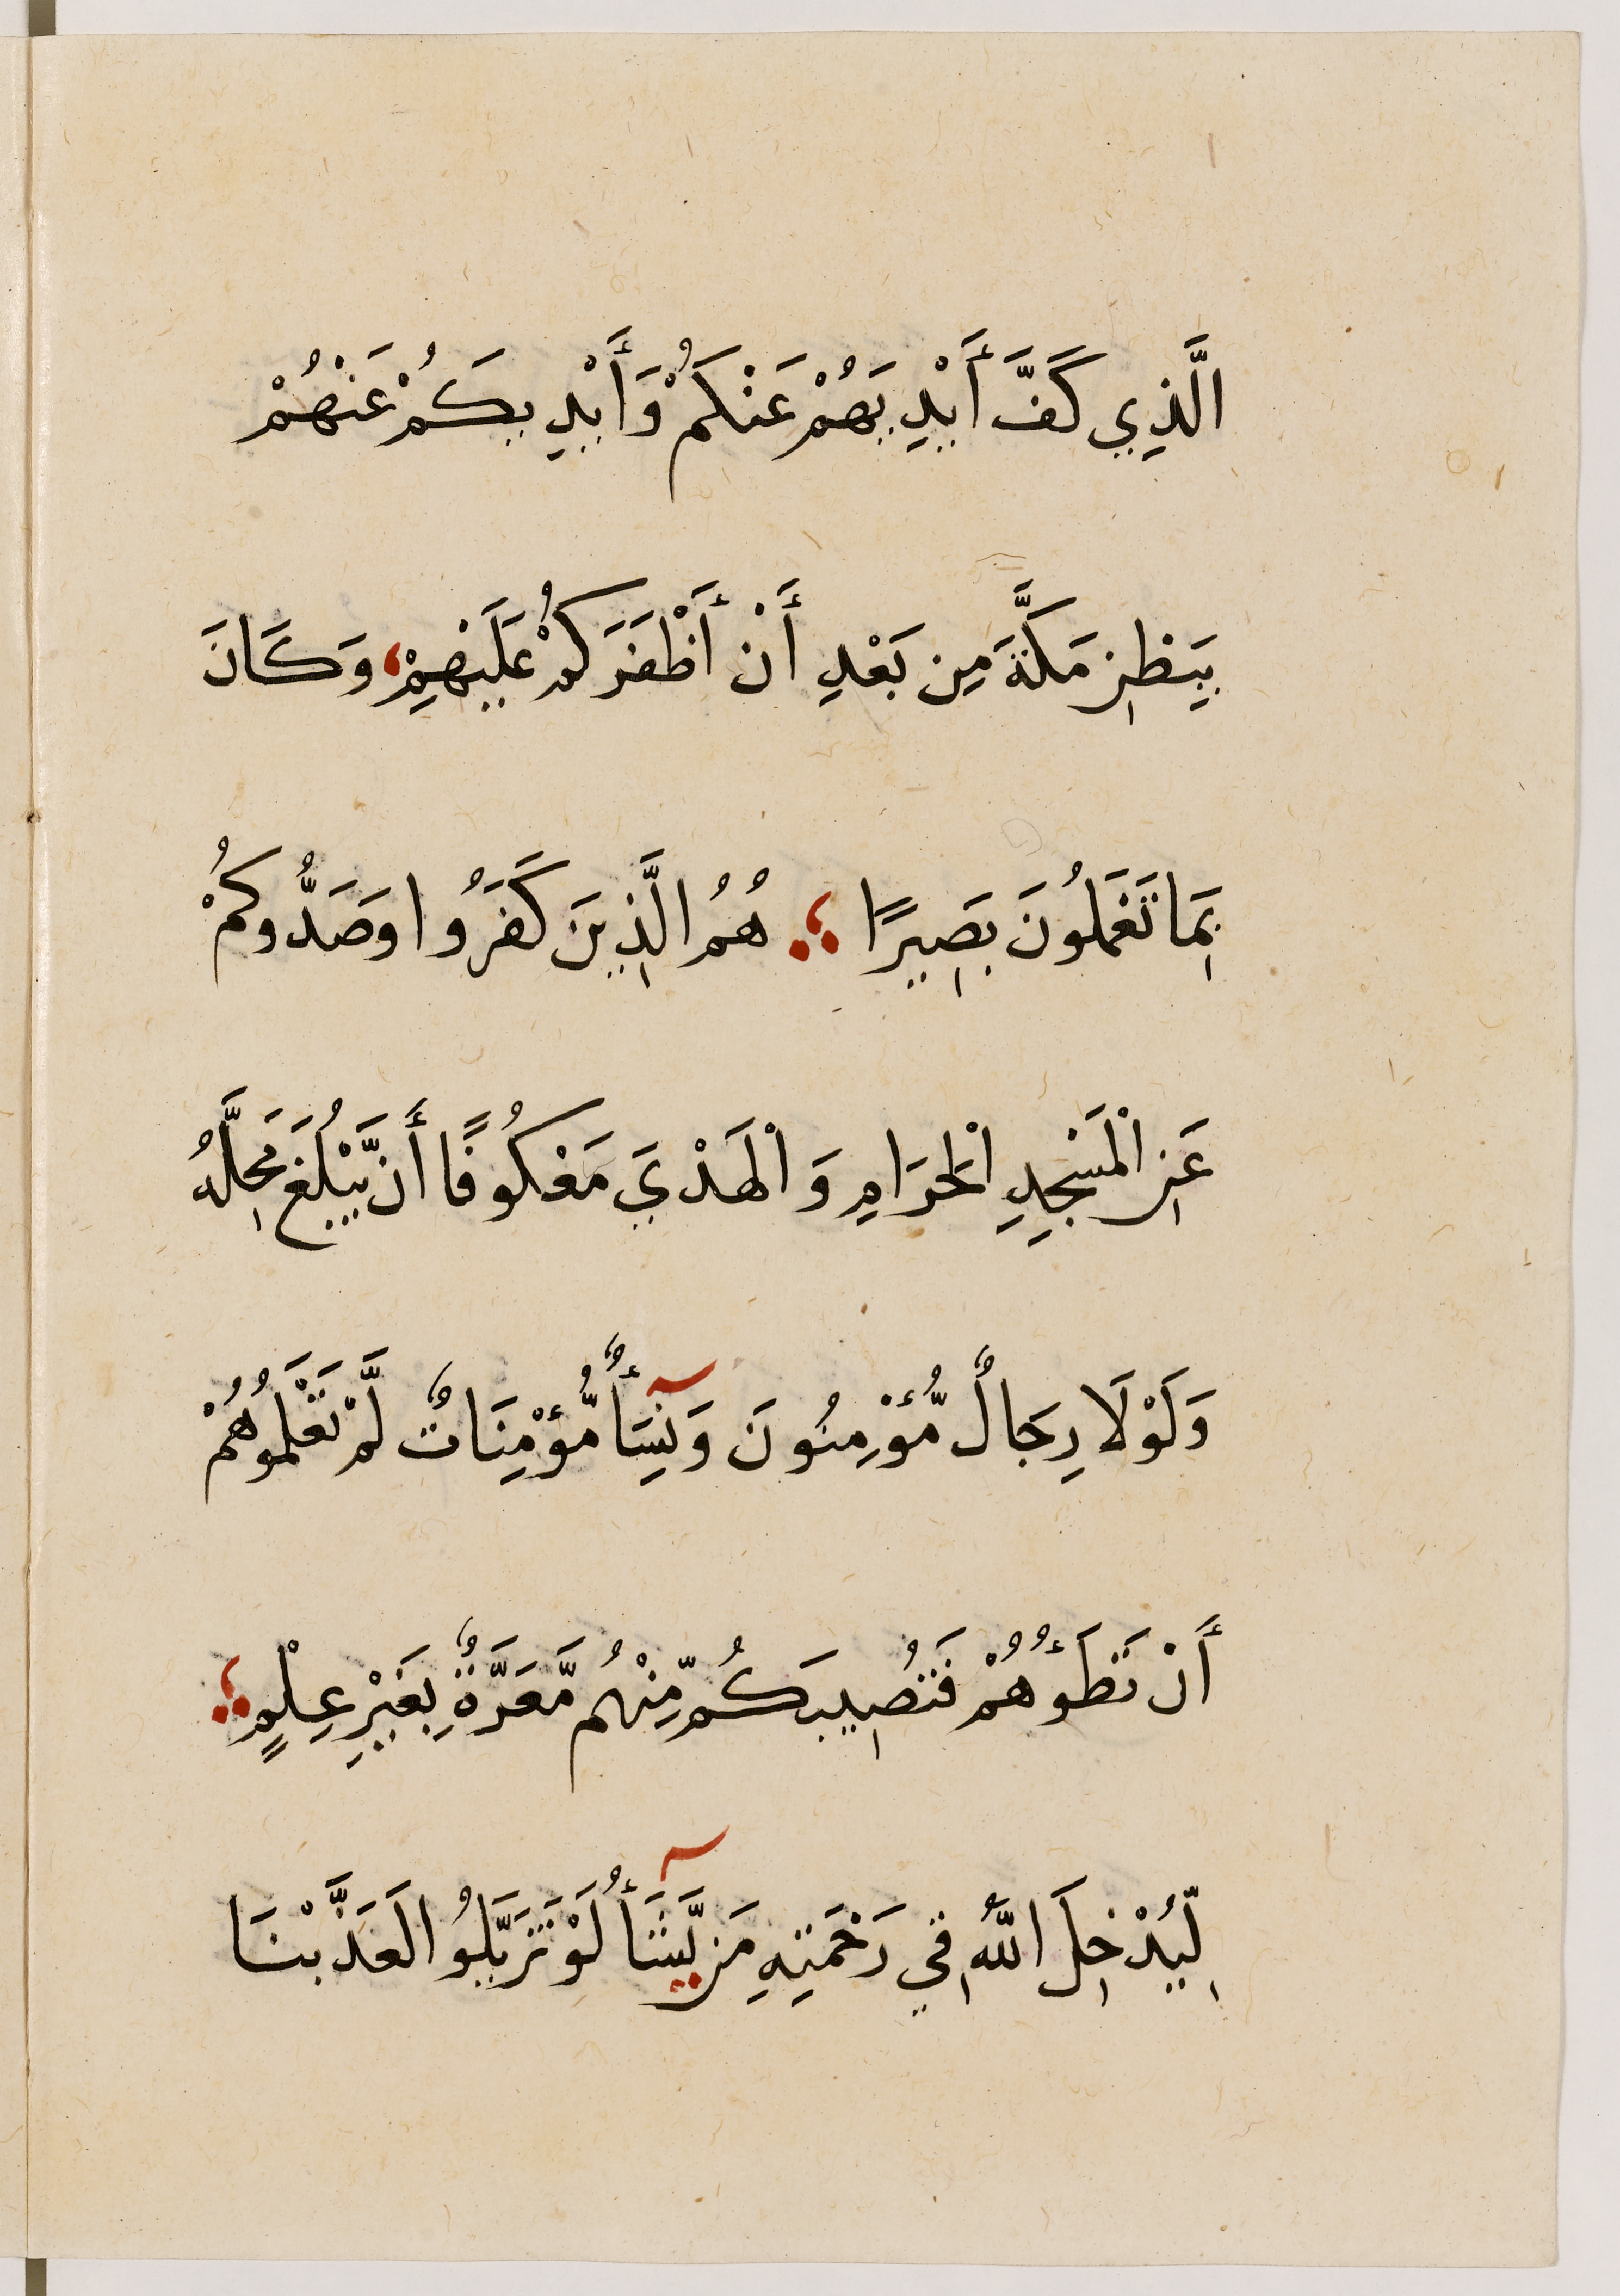 الَّذِي كَفَّ أَيْدِيَهُمْ عَنْكُمْ وَأَيْدِيكُمْ عَنْهُمْ
بِبَطْنِ مَكَّةَ مِن بَعْدِ أَنْ أَظْفَرَكُمْ عَلَيْهِمْ، وَكَانَ
بِمَا تَعْمَلُونَ بَصِيرًا ؛ هُمُ الَّذِينَ كَفَرُوا وَصَدُّوكُمْ
عَنِ الْمَسْجِدِ الْحَرَامِ وَالْهَدْيَ مَعْكُوفًا أَن يَّبْلُغَ مَحِلَّهُ
وَلَوْلَا رِجَالٌ مُّؤْمِنُونَ وَنِسَآأٌ مُّؤْمِنَاتٌ لَّمْ تَعْلَمُوهُمْ
أَنْ تَطَؤُهُمْ فَتُصِيبَكُم مِّنْهُم مَّعَرَّةٌ بِغَيْرِ عِلْمٍ ؛
لِّيُدْخِلَ اللَّهُ فِي رَحْمَتِهِ مَن يَّشَآأُ لَوْ تَزَيَّلُوا لَعَذَّبْنَا